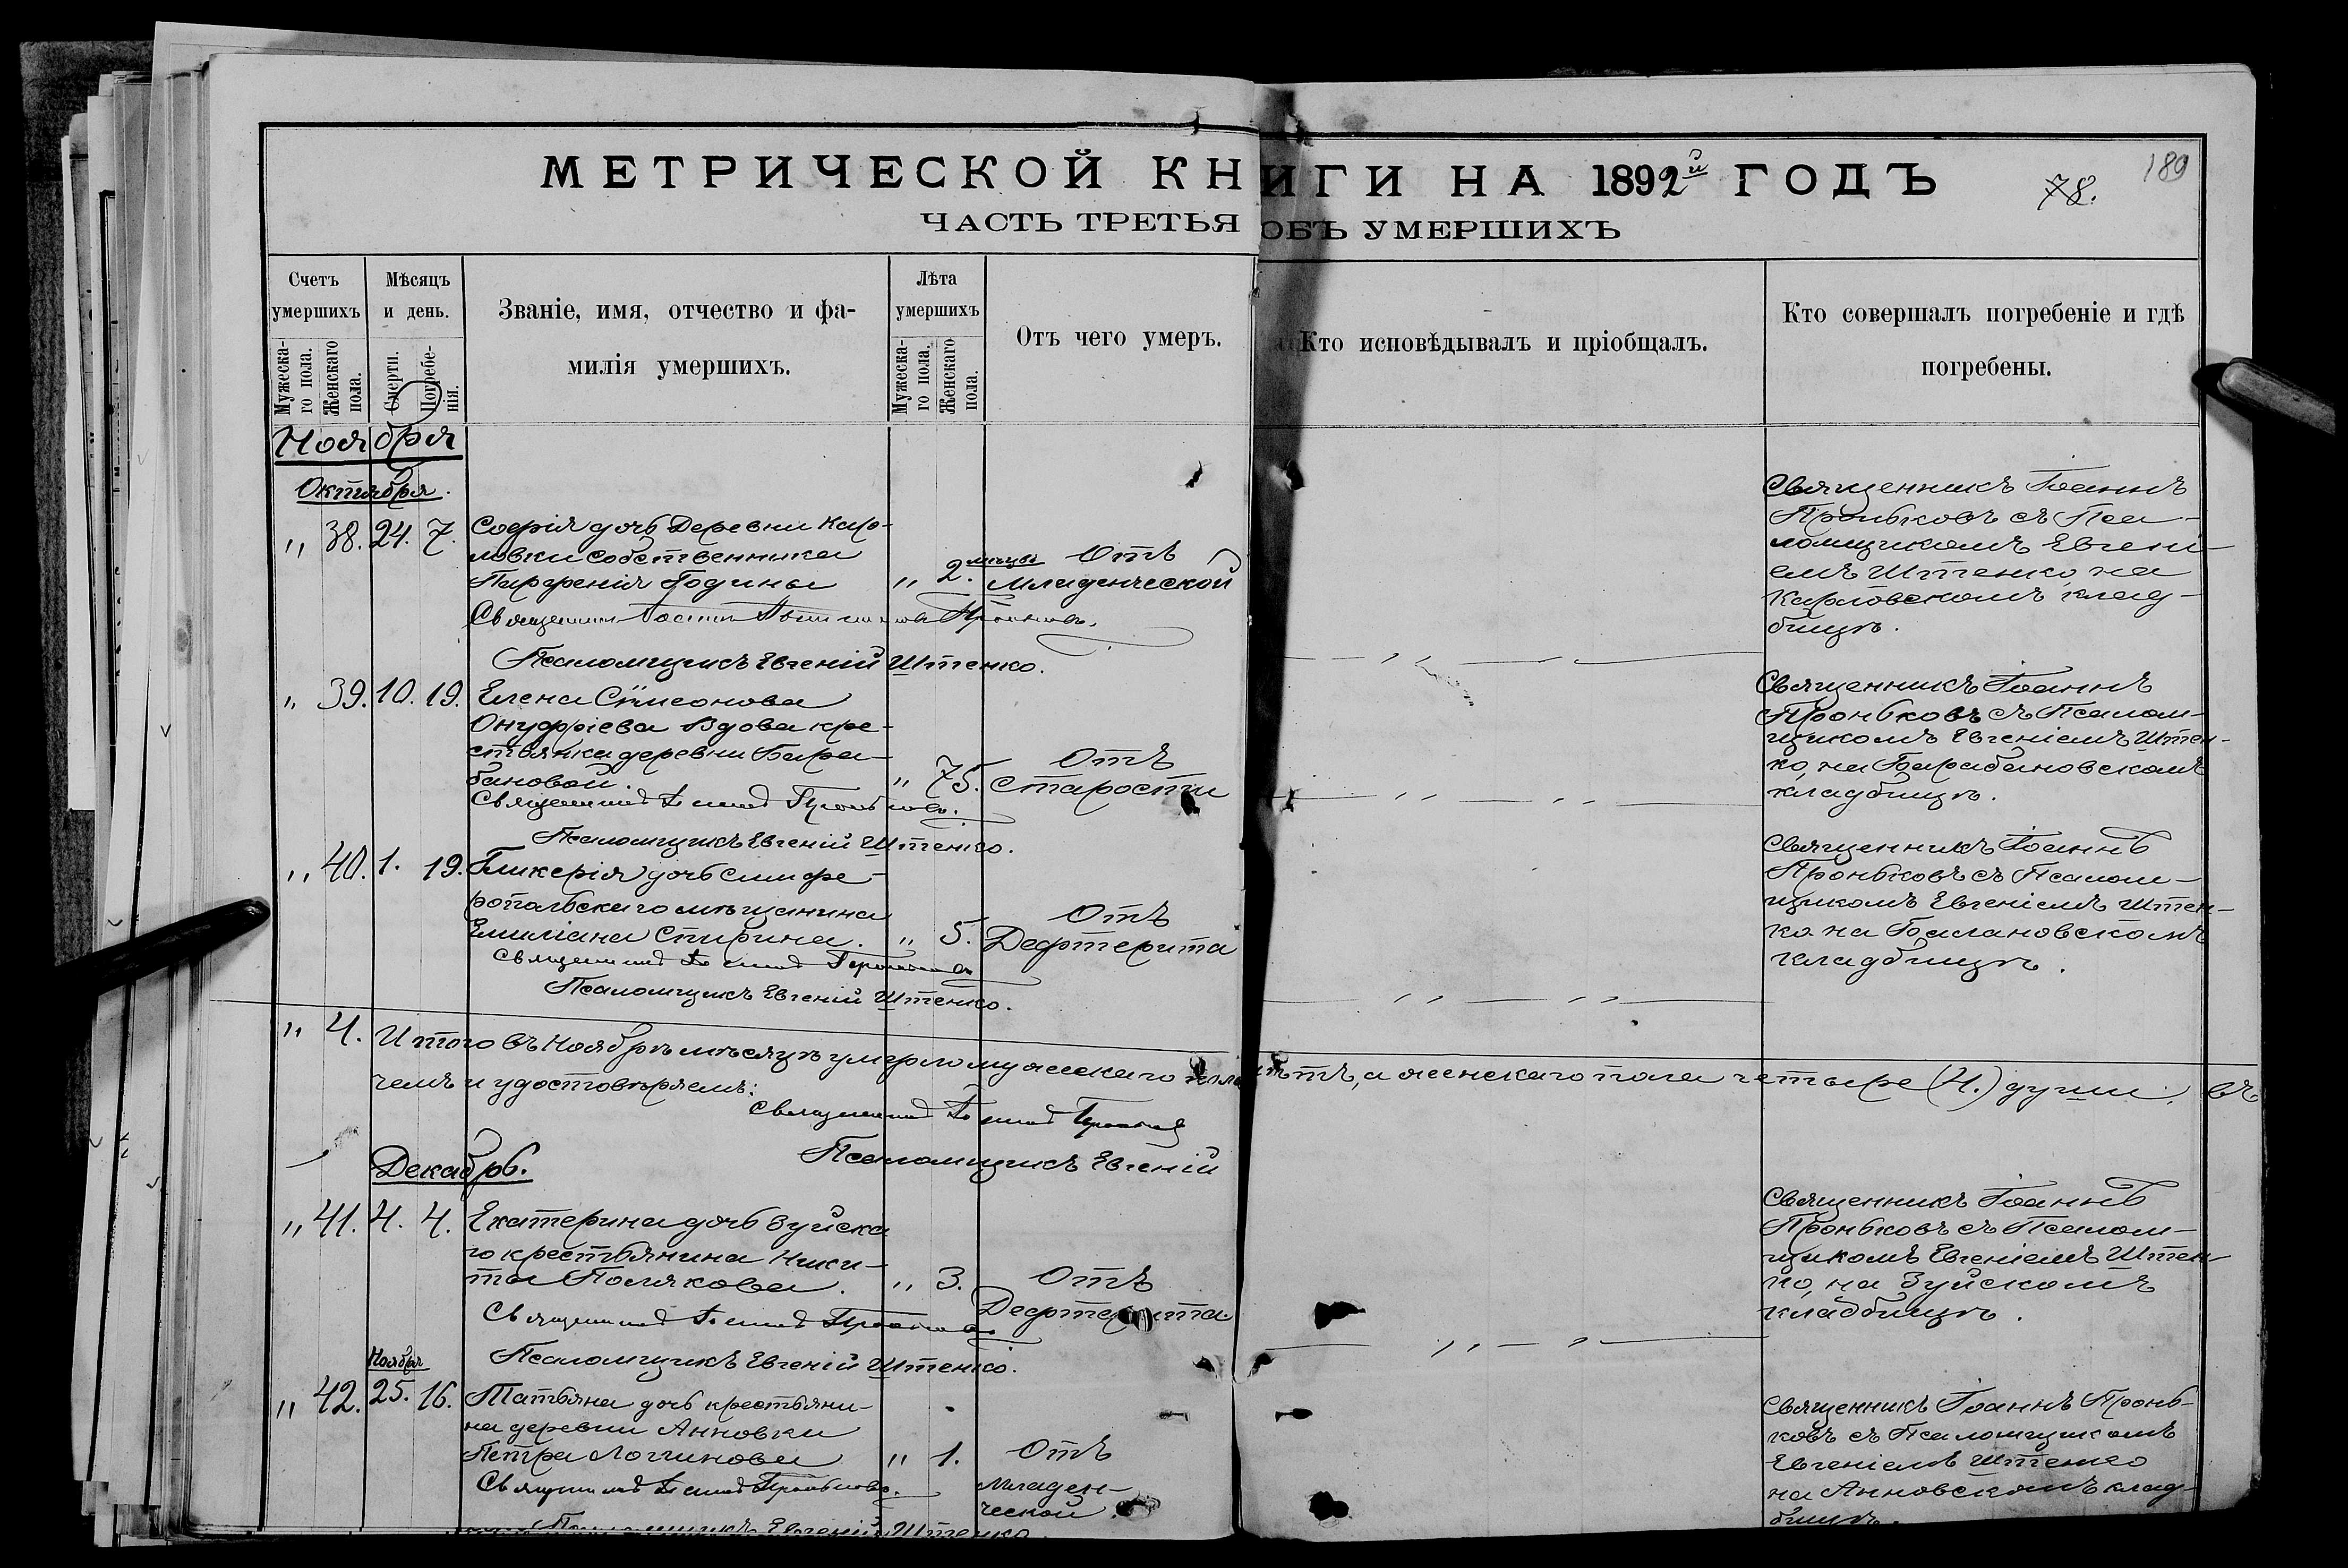 МЕТРИЧЕСКОЙ КНИГИ НА 1892й ГОДЪ
189
78.
ЧАСТЬ ТРЕТЬЯ ОБЪ УМЕРШИХЪ
Счетъ умершихъ
Мужеска-го пола.
Женскаго пола.
Мѣсяцъ и день.
Смерти.
Погребе-нія.
Званіе, имя, отчество и фа-
милія умершихъ.
Лѣта умершихъ
Мужеска-го пола.
Женскаго пола.
Отъ чего умеръ.
Кто исповѣдывалъ и пріобщалъ.
Кто совершалъ погребеніе и гдѣ
погребены.
Ноября
Октября.
„ 38. 24. 7. Софія дочь Деревни Каро-
ловки собственника
Парфенія Година „ 2. мѣсяц. Отъ
Младенческой
Священникъ Іоаннъ Проньковъ.
Псаломщикъ Евгеній Штенко.
Священникъ Іоаннъ
Проньковъ съ Пса-
ломщикомъ Евгені-
емъ Штенко, на
Карловскомъ клад-
бищѣ.
„ 39. 10. 19. Елена Сѵмеонова
Онуфріева Вдова кре-
стьянка деревни Бара-
бановой. „ 75. Отъ
старости
Священникъ Іоаннъ Проньковъ.
Псаломщикъ Евгеній Штенко.
Священникъ Іоаннъ
Проньковъ съ Псалом-
щикомъ Евгеніемъ Штен-
ко, на Барабановскомъ
кладбищѣ.
„ 40. 1. 19. Гликерія дочь Симфе-
ропольскаго мѣщанина
Емиліана Спирина. „ 5. Отъ
Дефтерита
Священникъ Іоаннъ Проньковъ
Псаломщикъ Евгеній Штенко.
Священникъ Іоаннъ
Проньковъ съ Псалом-
щикомъ Евгеніемъ Штен-
ко на Балановскомъ
кладбищѣ.
„ 4. Итого въ Ноябрѣ мѣсяцѣ умерло мужескаго пола нѣтъ, а женскаго пола четыре (4.) души; въ
чемъ и удостовѣряемъ:
Священникъ Іоаннъ Проньковъ
Псаломщикъ Евгеній
Декабрь.
„ 41. 4. 4. Екатерина дочь Зуйска
го крестьянина Ники-
ты Полякова. „ 3. Отъ
Дефтерита
Священникъ Іоаннъ Проньковъ
Псаломщикъ Евгеній Штенко.
Священникъ Іоаннъ
Проньковъ съ Псалом-
щикомъ Евгеніемъ Штен-
ко, на Зуйскомъ
кладбищѣ.
Ноября
„ 42. 25. 16. Татьяна дочь крестьяни-
на деревни Анновки
Петра Логинова „ 1. Отъ
Младен-
ческой.
Священникъ Іоаннъ Проньковъ.
Псаломщикъ Евгеній Штенко.
Священникъ Іоаннъ Пронь-
ковъ съ Псаломщикомъ
Евгеніемъ Штенко
на Анновскомъ клад-
бищѣ.